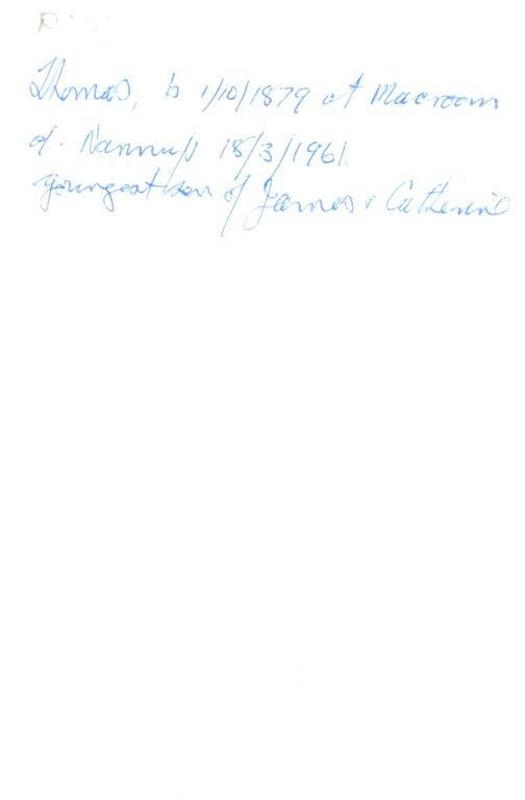 Thomas, b 1/10/1879 at Macroom
d. Nannup 18/3/1961.
youngest son of James & Catherine